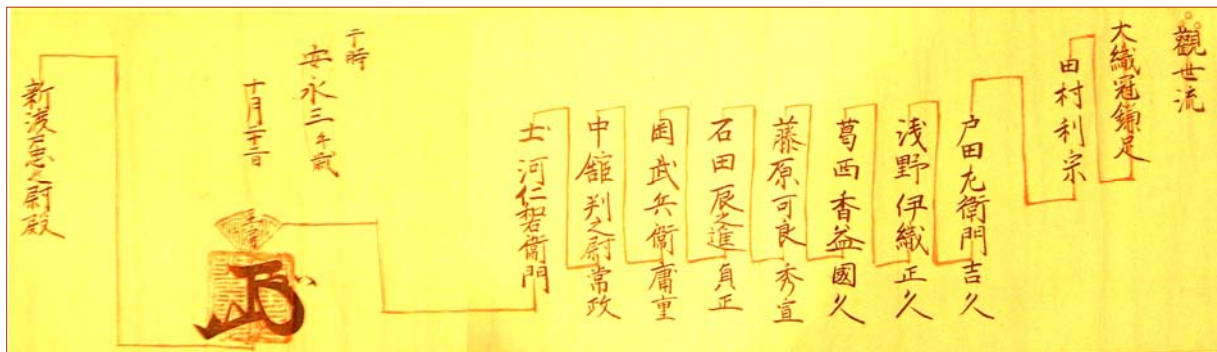 觀世流
大織冠鎌足
田村利宗
戸田左衛門吉久
浅野伊織正久
葛西香益國久
藤原可良秀宣
石田辰之進貞正
国武兵衛庸重
中舘判之尉常政
士河仁右衛門
于時
安永三午歳
十月二十二日
新渡戸忠之尉殿